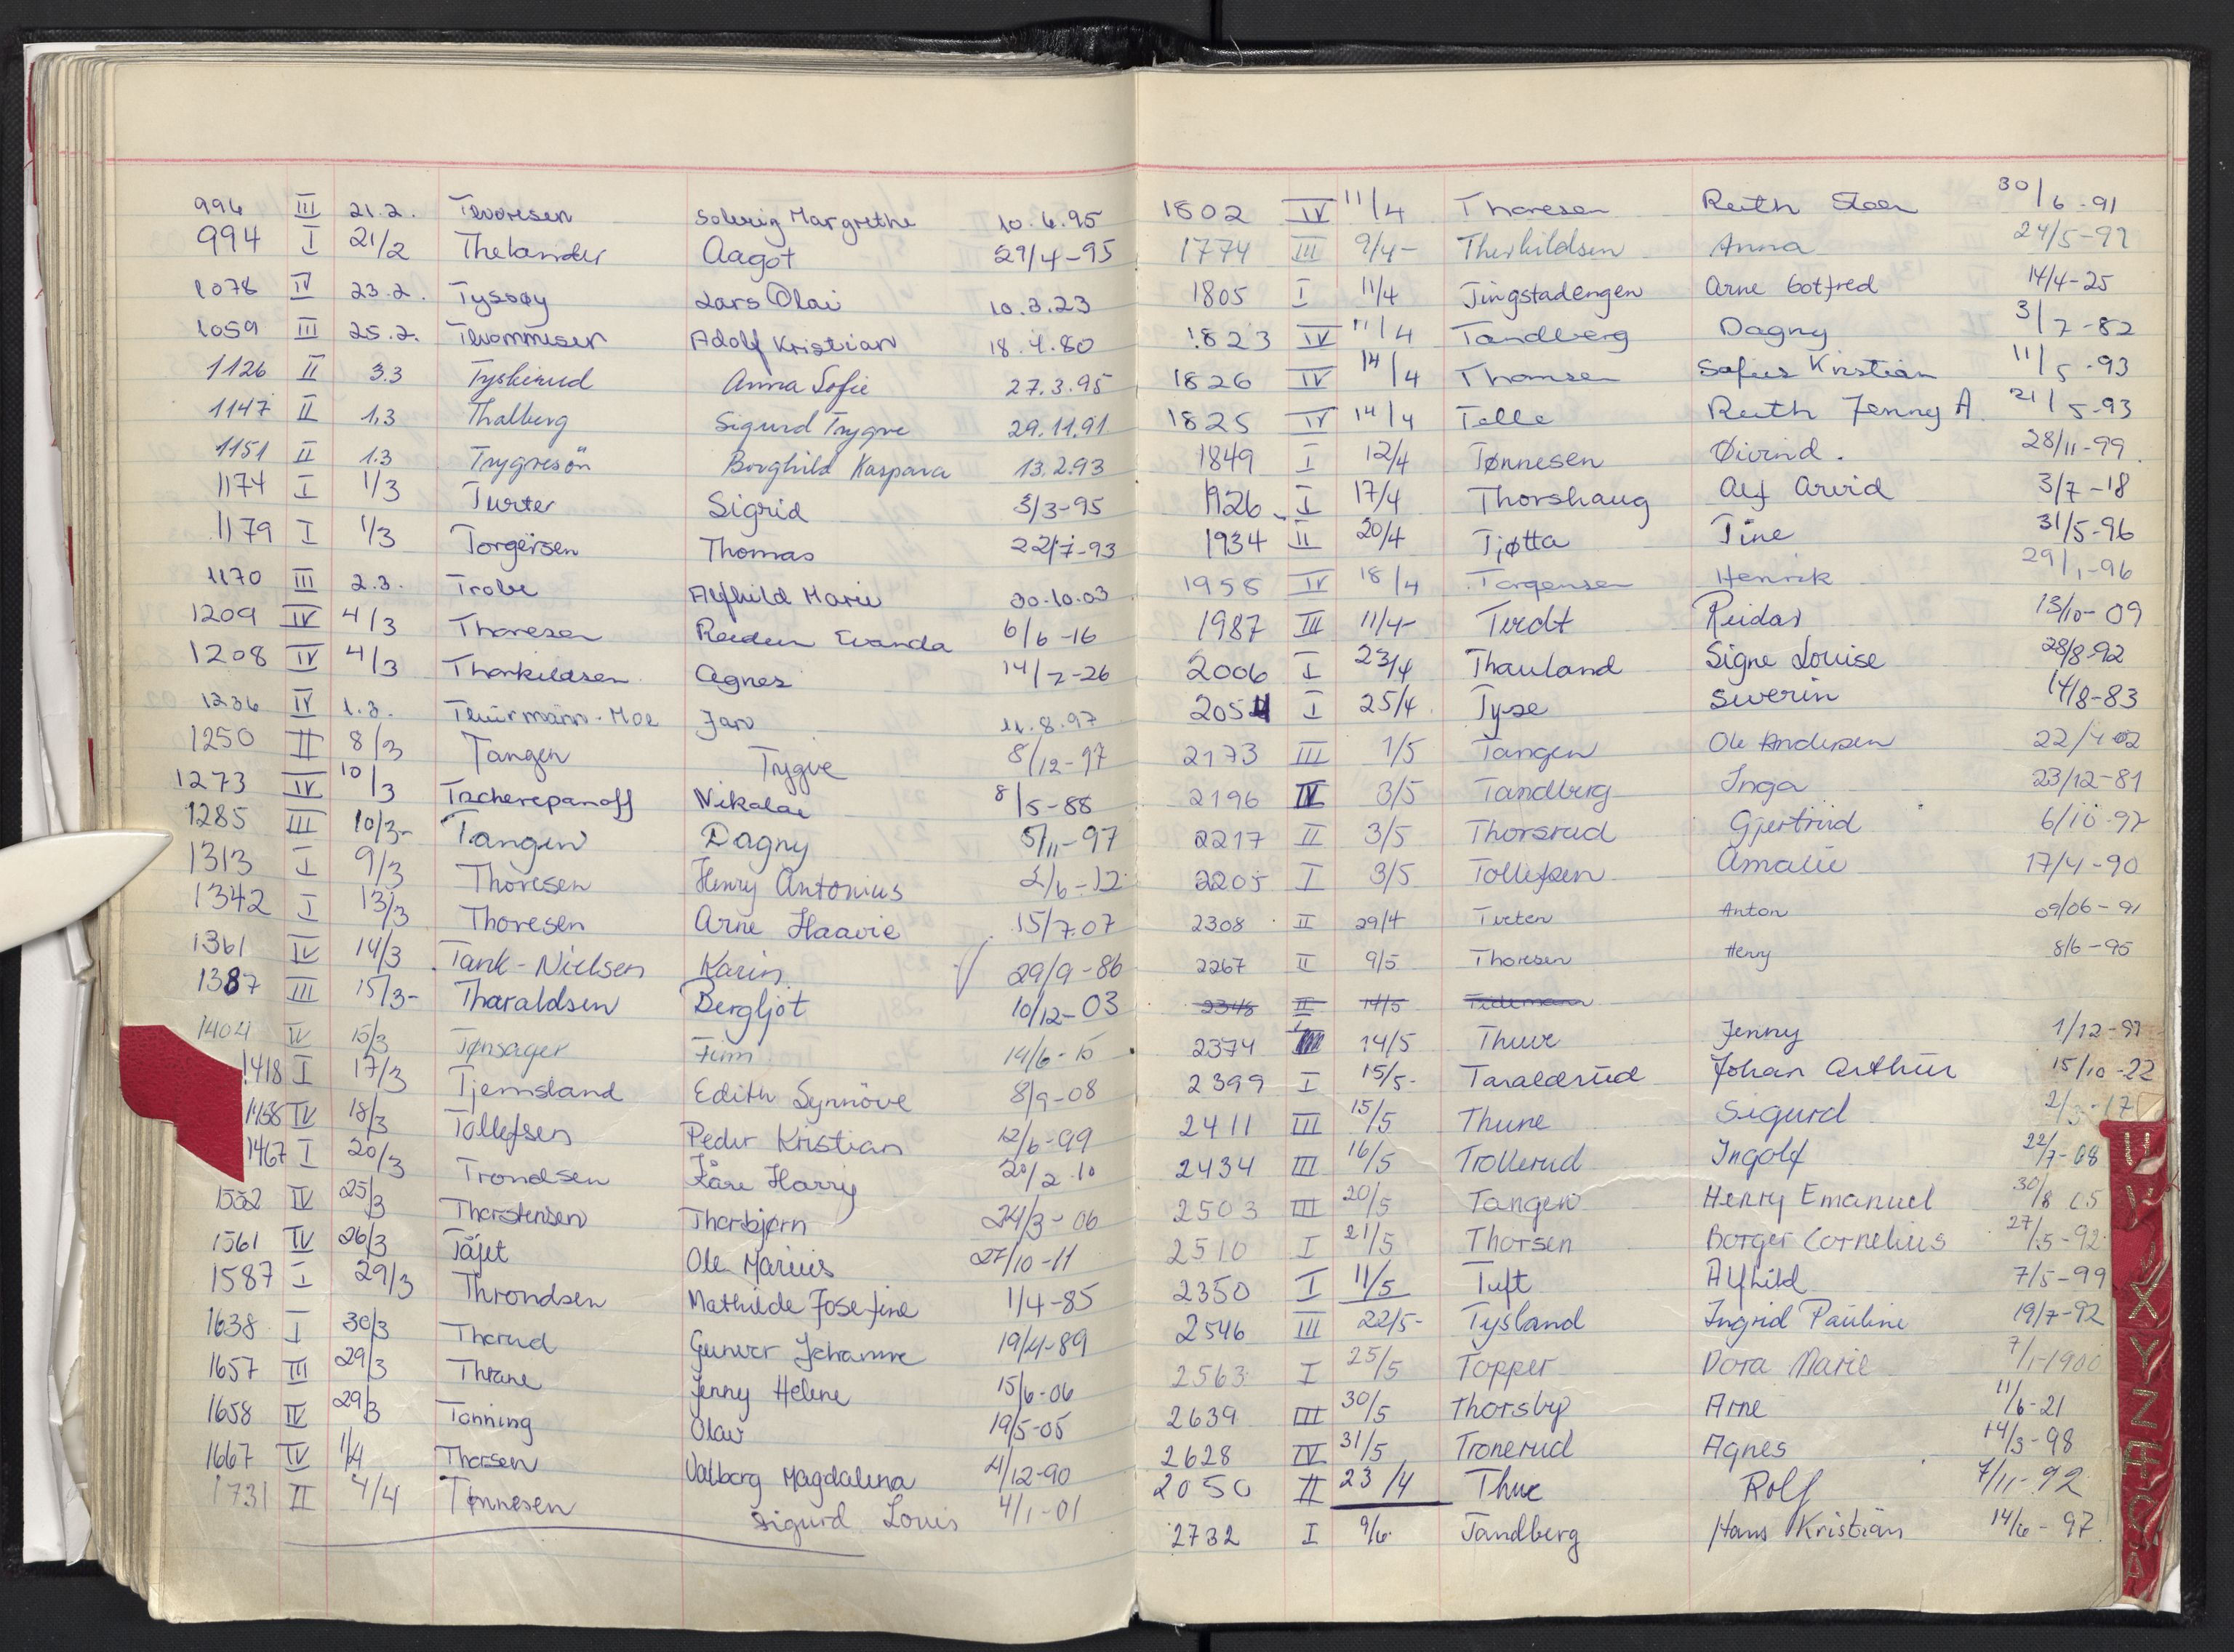 994 III 21.2. Thoresen Solveig Margrethe 10.6.95
994 I 21/2 Thelander Aagot 29/4-95
1078 IV 23.2. Tyssøy Lars Olai 10.3.23
1059 III 25.2. Thommesen Adolf Kristian 18.4.80
1126 II 3.3 Tyskerud Anna Sofie 27.3.95
1147 II 1.3 Thalberg Sigurd Trygve 29.11.91
1151 II 1.3 Trygvesön Borghild Kaspara 13.2.93
1174 I 1/3 Turter Sigrid 3/3-95
1179 I 1/3 Torgersen Thomas 22/7-93
1170 III 2.3. Trobe Alfhild Marie 30.10.03
1209 IV 4/3 Thoresen Reidun Wanda 6/6-16
1208 IV 4/3 Thorkildsen Agnes 14/7-26
1236 IV 1.3. Thurmann-Moe Jan 11.8.97
1250 II 8/3 Tangen Trygve 8/12-97
1273 IV 10/3 Tscherepanoff Nikolai 8/5-88
1285 III 10/3- Tangen Dagny 5/11-97
1313 I 9/3 Thoresen Henry Antonius 2/6-12
1342 I 13/3 Thoresen Arne Haavie 15/7.07
1361 IV 14/3 Tank-Nielsen Karin 29/9-86
1387 III 15/3- Tharaldsen Bergljot 10/12-03
1404 IV 15/3 Tønsager Finn 14/6-15
1418 I 17/3 Tjemsland Edith Synnöve 8/9-08
1458 IV 18/3 Tollefsen Peder Kristian 12/6-99
1467 I 20/3 Trondsen Kåre Harry 20/2.10
1552 IV 25/3 Thorstensen Thorbjørn 24/3-06
1561 IV 26/3 Tåjet Ole Marius 27/10-11
1587 I 29/3 Throndsen Mathilde Josefine 1/4-85
1638 I 30/3 Thorud Gunvor Johanne 19/4-89
1657 III 29/3 Thrane Jenny Helene 15/6-06
1658 IV 29/3 Tonning Olav 19/5-05
1667 IV 1/4 Thorsen Valborg Magdalena 4/12-90
1731 II 4/4 Tønnesen Sigurd Louis 4/1-01
1802 IV 11/4 Thoresen Ruth Steen 30/6-91
1774 III 9/4- Therkildsen Anna 24/5-92
1805 I 11/4 Tingstadengen Arne Gotfred 14/4-25
1823 IV 11/4 Tandberg Dagny 3/7-82
1826 IV 14/4 Thomsen Sofus Kristian 11/5-93
1825 IV 14/4 Telle Ruth Jenny A. 21/5-93
1849 I 12/4 Tønnesen Øivind. 28/11-99.
1926 I 17/4 Thorshaug Alf Arvid 3/7-18
1934 II 20/4 Tjøtta Tine 31/5-96
1958 IV 18/4 Torgensen Henrik 29/1-96
1987 III 11/4- Tvedt Reidar 13/10-09
2006 I 23/4 Thauland Signe Louise 28/8-92
2054 I 25/4 Tyse Siverin 14/8-83
2173 III 1/5 Tangen Ole Andersen 22/4-02
2196 IV 3/5 Tandberg Inga 23/12-81
2217 II 3/5 Thorsrud Gjertrud 6/10-97
2205 I 3/5 Tollefsen Amalie 17/4-90
2308 II 29/4 Tveten Anton 09/06-91
2267 II 9/5 Thoresen Henry 8/6-95
2348 II 14/5 Tidemann
2374 14/5 Thuve Jenny 1/12-97
2399 I 15/5- Taraldrud Johan Arthur 15/10-22
2411 III 15/5 Thune Sigurd 2/3-17
2434 III 16/5 Trollerud Ingolf 22/7-08
2503 III 20/5 Tangen Henry Emanuel 30/8 05
2510 I 21/5 Thorsen Borger Cornelius 27/5-92
2350 I 11/5 Tuft Alfhild 7/5-99
2546 III 22/5- Tysland Ingrid Pauline 19/7-92
2563 I 25/5 Topper Dora Marie 7/1-1900
2639 III 30/5 Thorsby Arne 11/6-21
2628 IV 31/5 Tronerud Agnes 14/3-98
2050 II 23/4 Thue Rolf 7/11-92
2732 I 9/6. Tandberg Hans Kristian 14/6-97
X
Y
Z
Æ
Ø